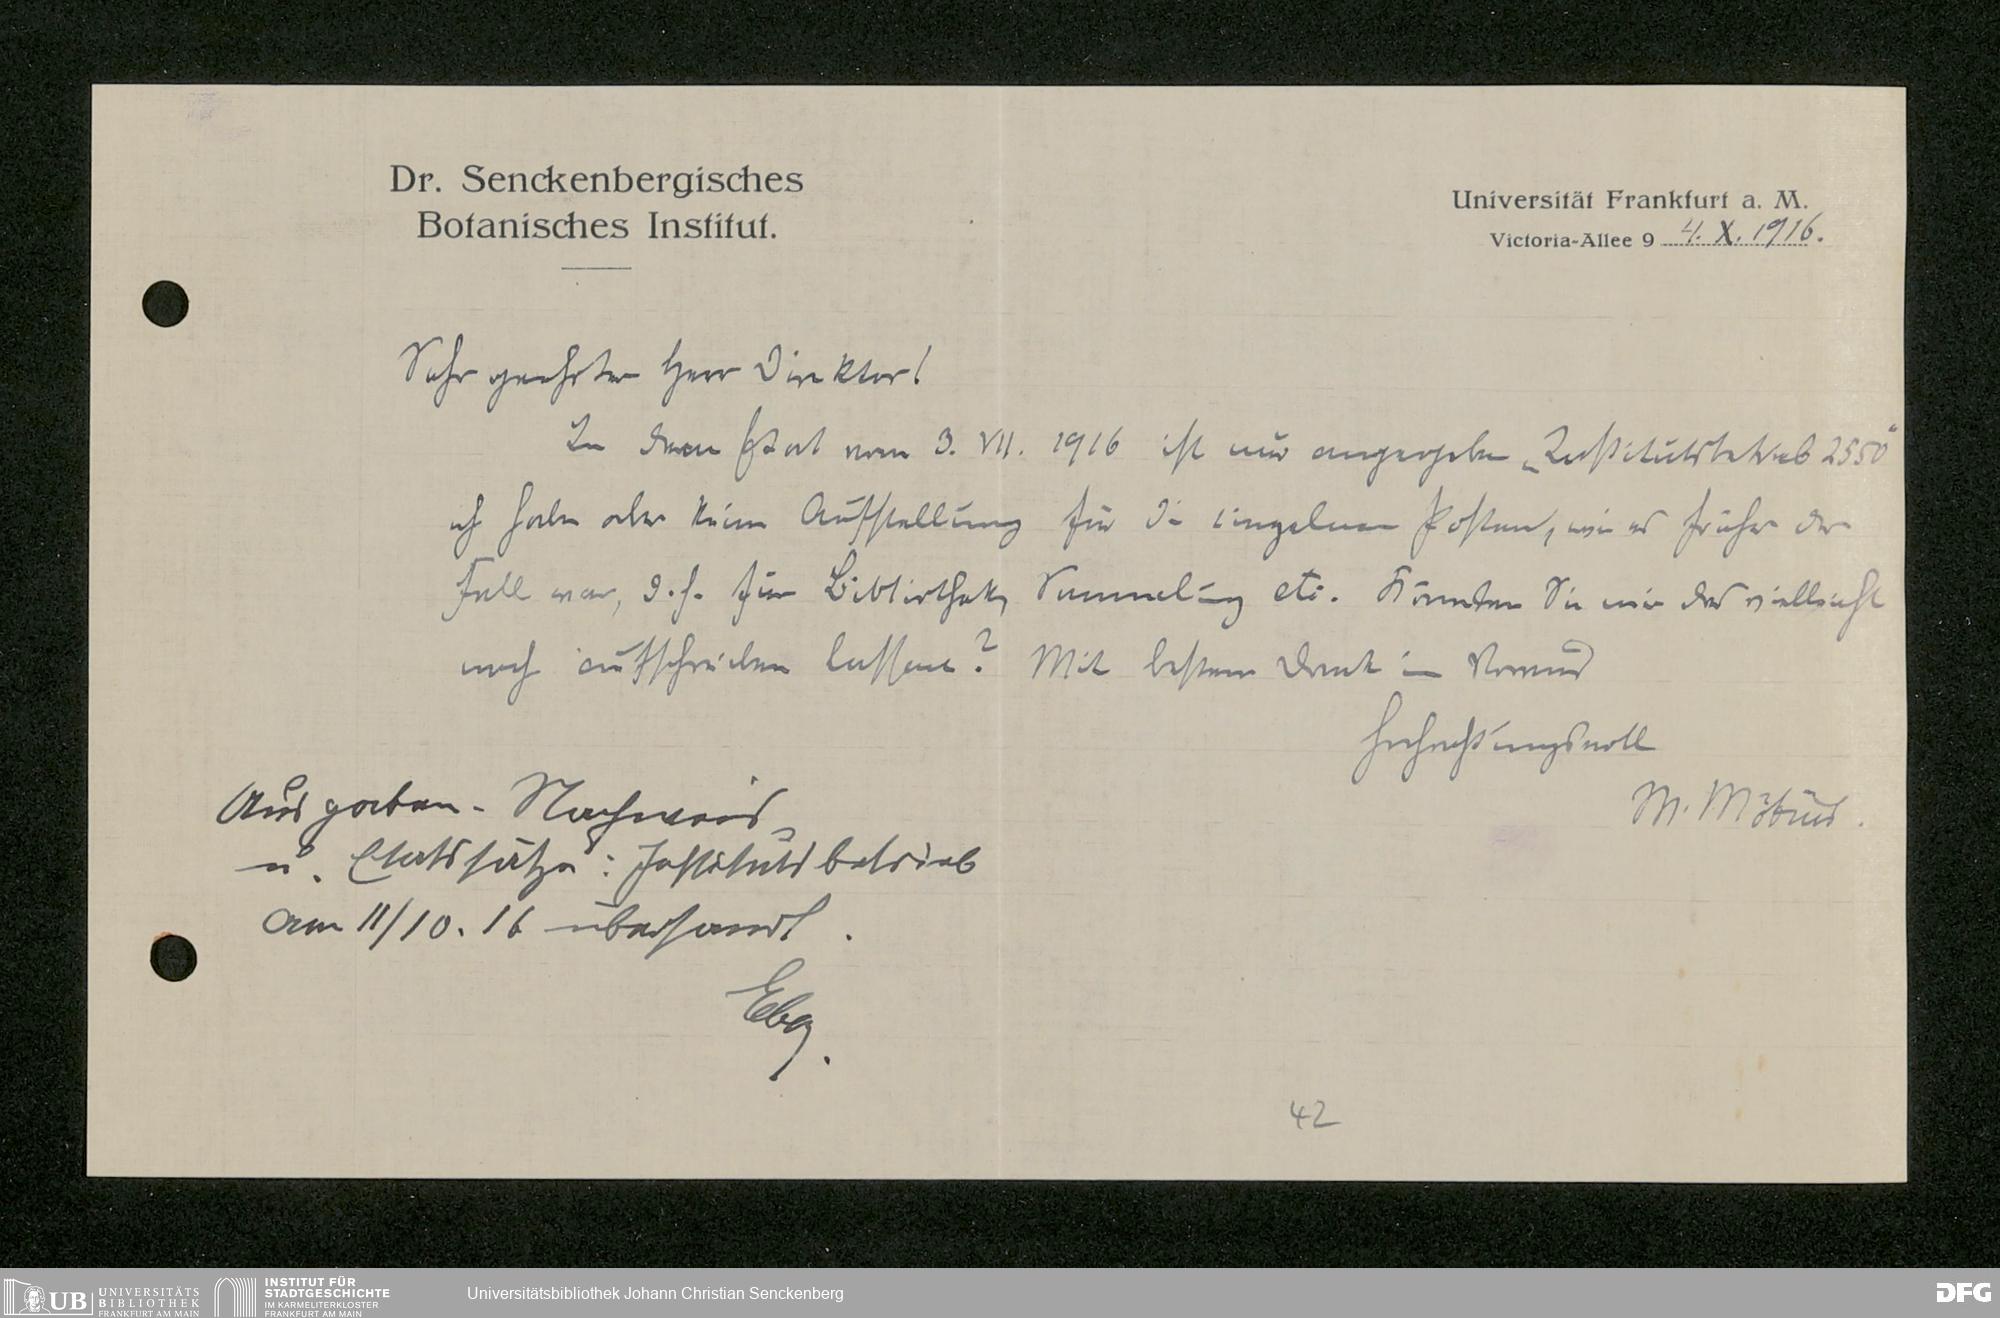 Dr. Senckenbergisches
Botanisches Institut.
Universität Frankfurt a. M.
Victoria-Allee 9 4. X. 1916.
Sehr geehrter Herr Direktor!
In dem Etat vom 3. VII. 1916 ist nur angegeben „Institutsbetrieb 2550“
ich habe aber keine Aufstellung für die einzelnen Posten, wie es früher der
Fall war, d. h. für Bibliothek, Sammlung etc. Könnten Sie mir das vielleicht
noch aufschreiben lassen? Mit bestem Dank im Voraus
Hochachtungsvoll
M. Möbius.
Ausgaben-Nachweis
u. Etatssätze: Institutsbetrieb
am 11/10. 16 übersandt.
Ebg.
42
UB UNIVERSITÄTS
BIBLIOTHEK
FRANKFURT AM MAIN
INSTITUT FÜR
STADTGESCHICHTE
IM KARMELITERKLOSTER
FRANKFURT AM MAIN
Universitätsbibliothek Johann Christian Senckenberg
DFG